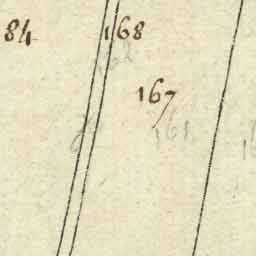 84 168
167
161